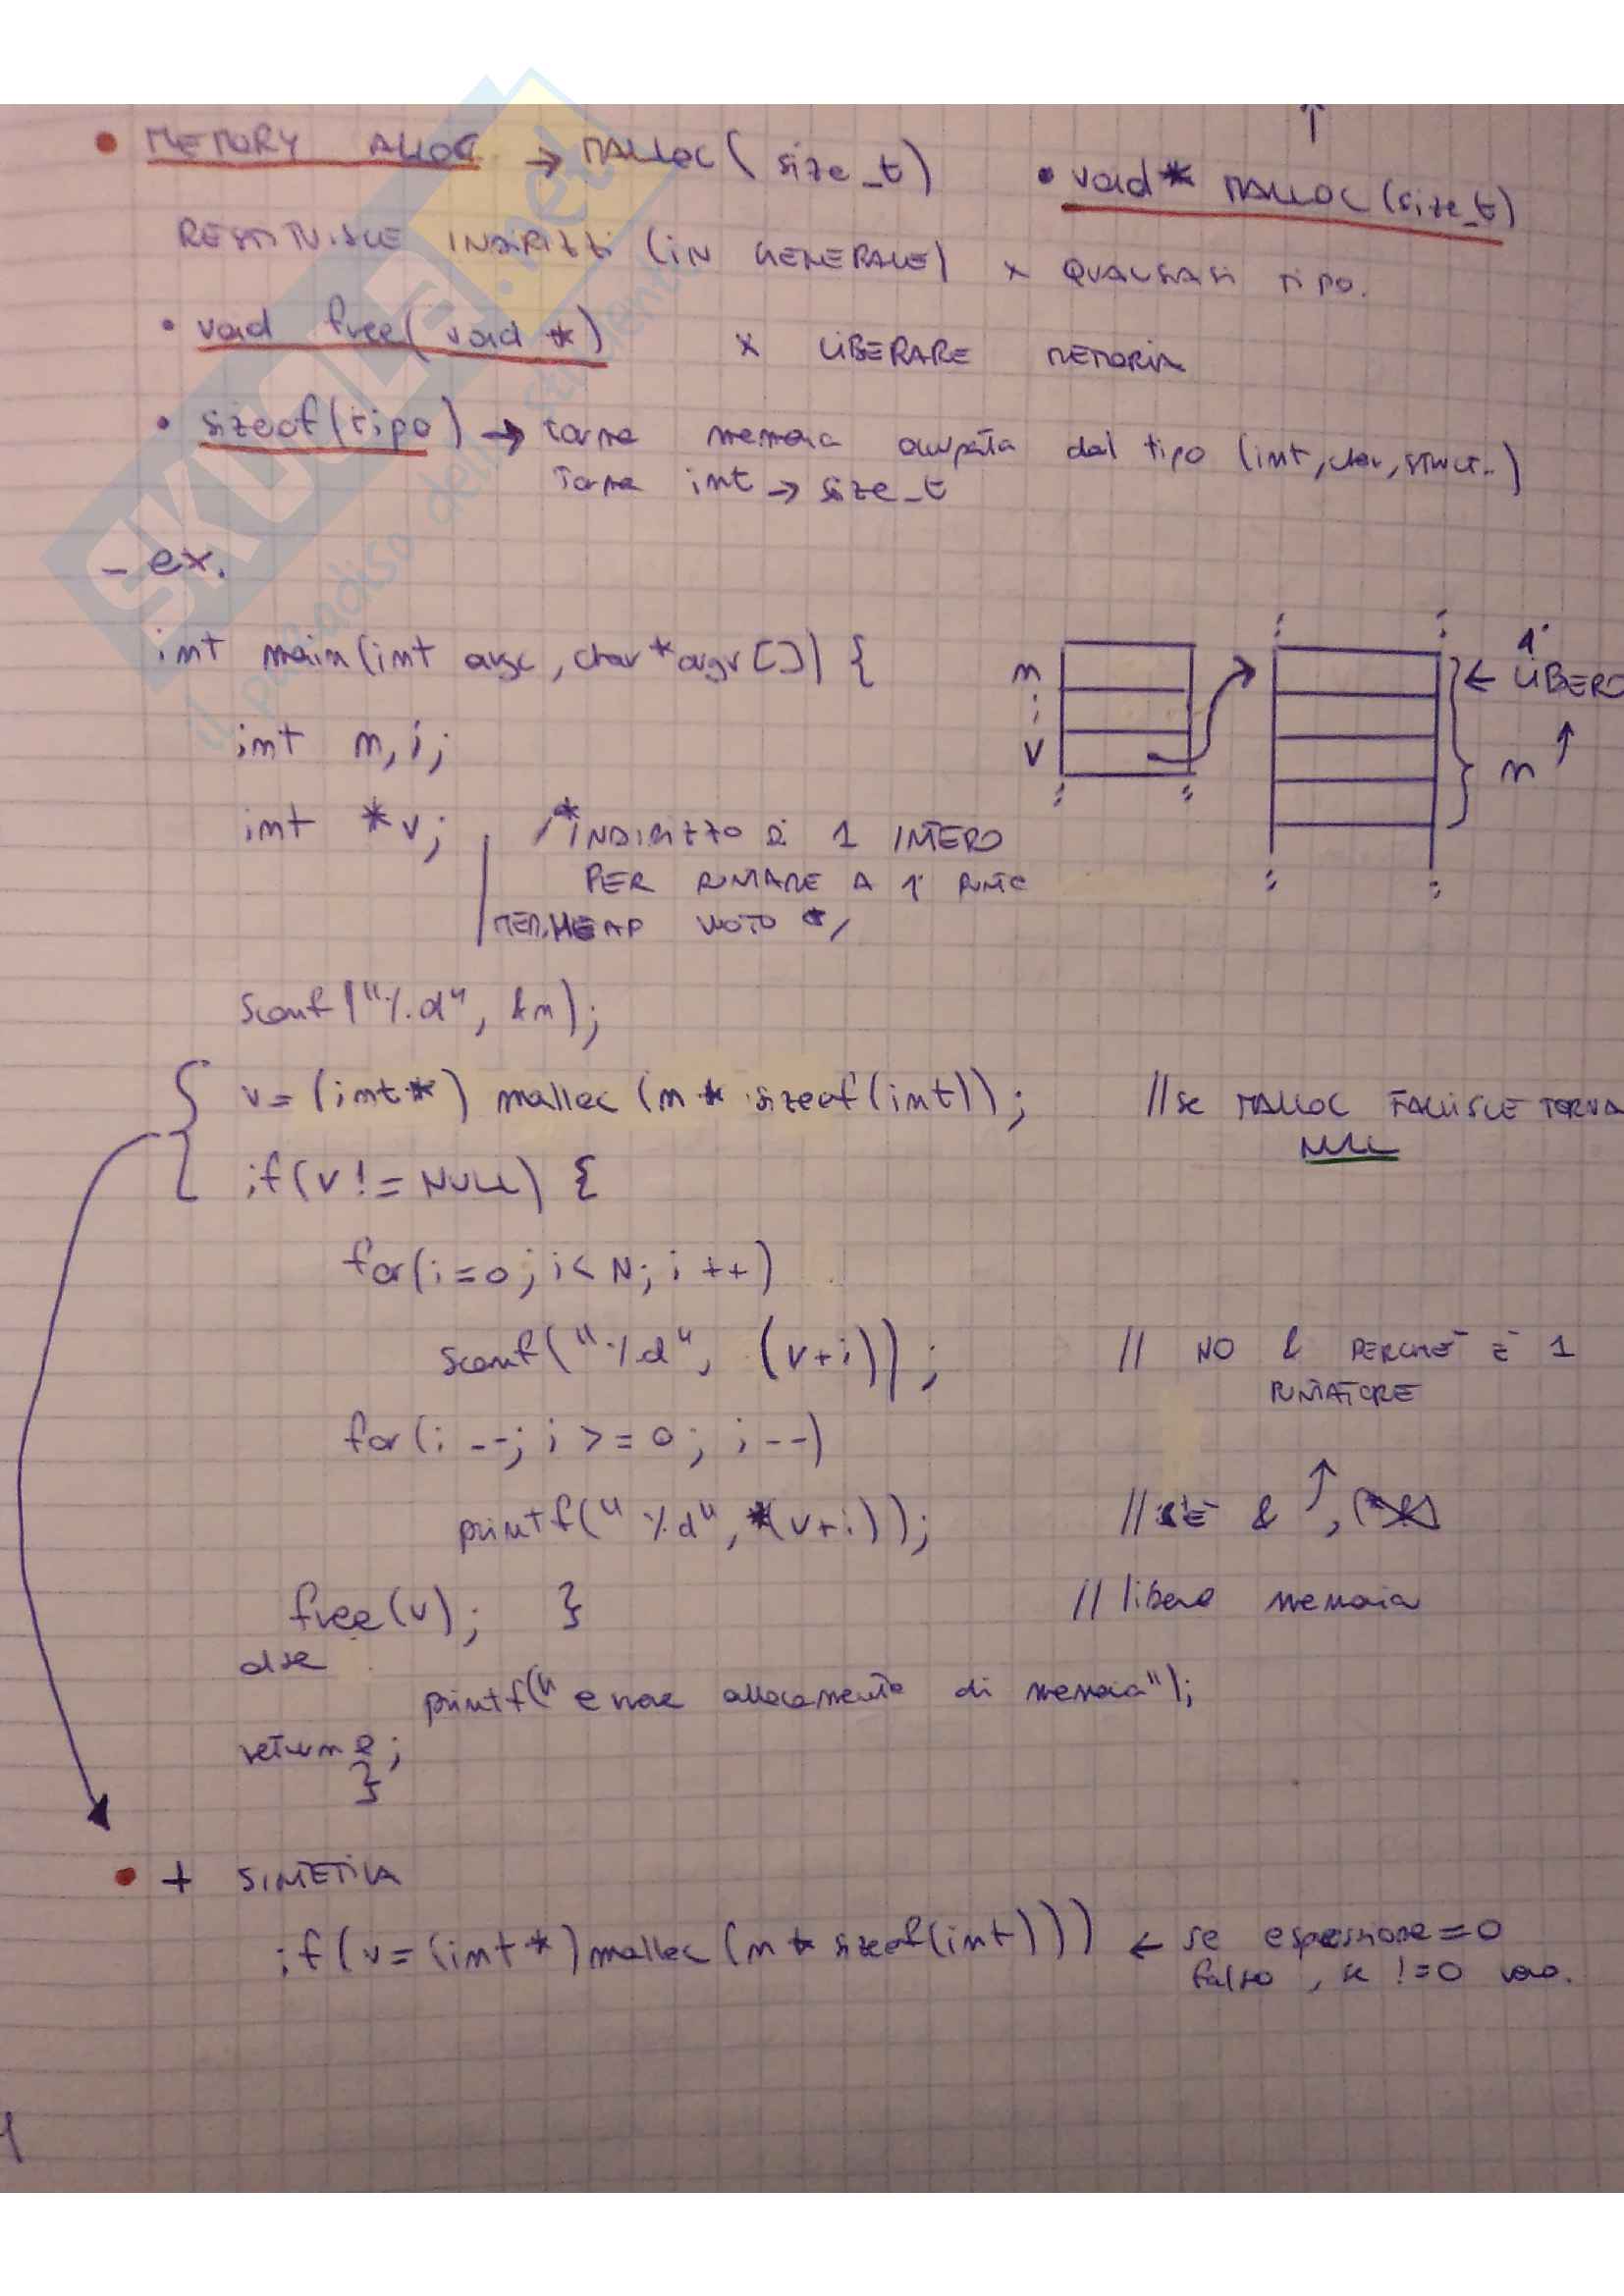 • MEMORY ALLOC → MALLOC( size_t) • void* MALLOC(size_t)
RESTITUISCE INDIRIZZI (IN GENERALE) x QUALSIASI TIPO.
• void free( void *) x LIBERARE MEMORIA
• sizeof(tipo) → torna memoria occupata dal tipo (int, char, struct..)
torna int → size_t
- ex.
int main(int argc, char *argv[]) {
int n, i;
int *v; /* INDIRIZZO DI 1 INTERO
PER PUNTARE A 1° PUNTO
MEM.HEAP VUOTO */
n
i
v
1°
← LIBERO
n
scanf("%d", &n);
v = (int*) malloc (n * sizeof(int)); // se MALLOC FALLISCE TORNA
NULL
if(v != NULL) {
for(i=0; i< N; i ++)
scanf("%d", (v+i)); // NO & PERCHÈ È 1
PUNTATORE
for(i --; i >= 0; i --)
printf("%d", *(v+i)); // &
free(v); } // libero memoria
else
printf("errore allocamento di memoria");
return 0;
}
• + SINTETICA
if(v = (int*)malloc (n * sizeof(int))) ← se espressione = 0
falso, se != 0 vero.
SKUOLA.net
il paradiso dello studente